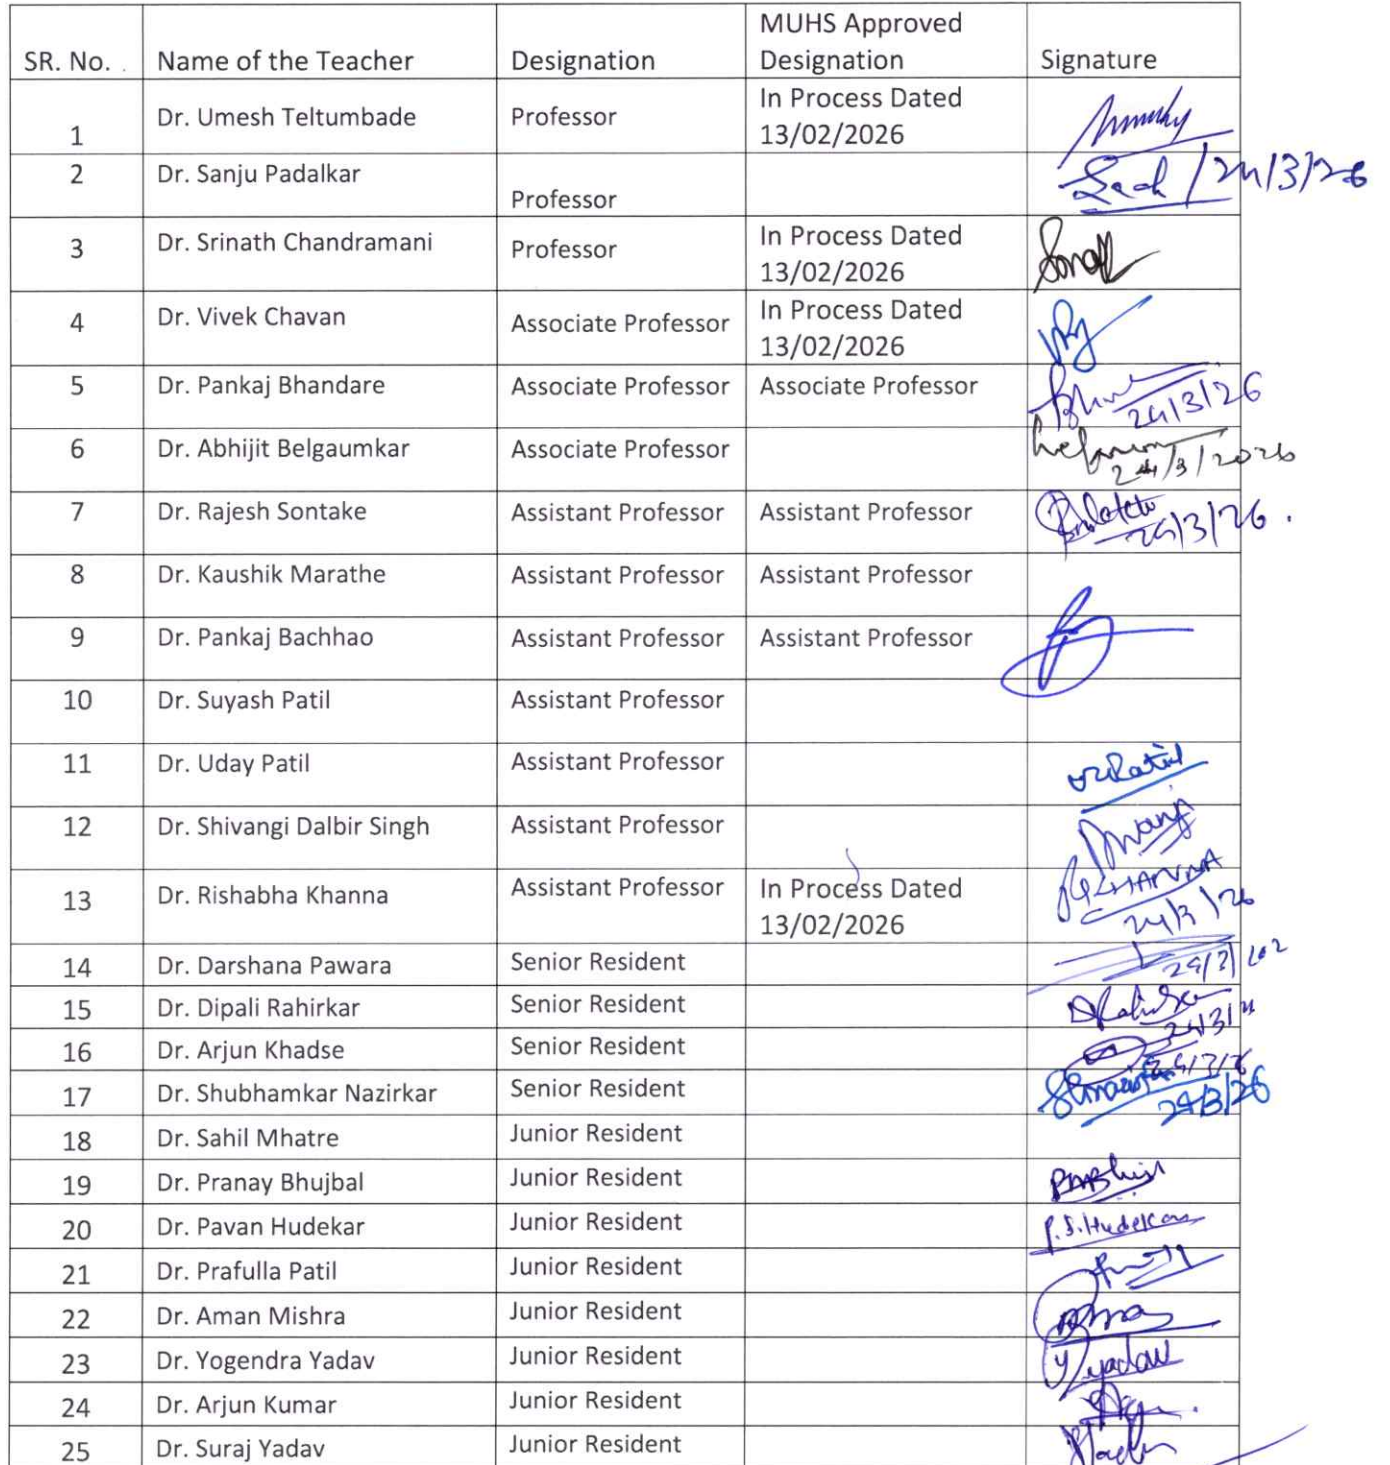 SR. No. Name of the Teacher Designation MUHS Approved Designation Signature
1 Dr. Umesh Teltumbade Professor In Process Dated 13/02/2026
2 Dr. Sanju Padalkar Professor 24/3/26
3 Dr. Srinath Chandramani Professor In Process Dated 13/02/2026
4 Dr. Vivek Chavan Associate Professor In Process Dated 13/02/2026
5 Dr. Pankaj Bhandare Associate Professor Associate Professor 24/3/26
6 Dr. Abhijit Belgaumkar Associate Professor 24/3/2026
7 Dr. Rajesh Sontake Assistant Professor Assistant Professor 24/3/26.
8 Dr. Kaushik Marathe Assistant Professor Assistant Professor
9 Dr. Pankaj Bachhao Assistant Professor Assistant Professor
10 Dr. Suyash Patil Assistant Professor
11 Dr. Uday Patil Assistant Professor
12 Dr. Shivangi Dalbir Singh Assistant Professor
13 Dr. Rishabha Khanna Assistant Professor In Process Dated 13/02/2026 RKHANNA 24/3/26
14 Dr. Darshana Pawara Senior Resident
15 Dr. Dipali Rahirkar Senior Resident
16 Dr. Arjun Khadse Senior Resident
17 Dr. Shubhamkar Nazirkar Senior Resident 24/3/26
18 Dr. Sahil Mhatre Junior Resident
19 Dr. Pranay Bhujbal Junior Resident
20 Dr. Pavan Hudekar Junior Resident P.S.Hudekar
21 Dr. Prafulla Patil Junior Resident
22 Dr. Aman Mishra Junior Resident
23 Dr. Yogendra Yadav Junior Resident Yyadav
24 Dr. Arjun Kumar Junior Resident
25 Dr. Suraj Yadav Junior Resident